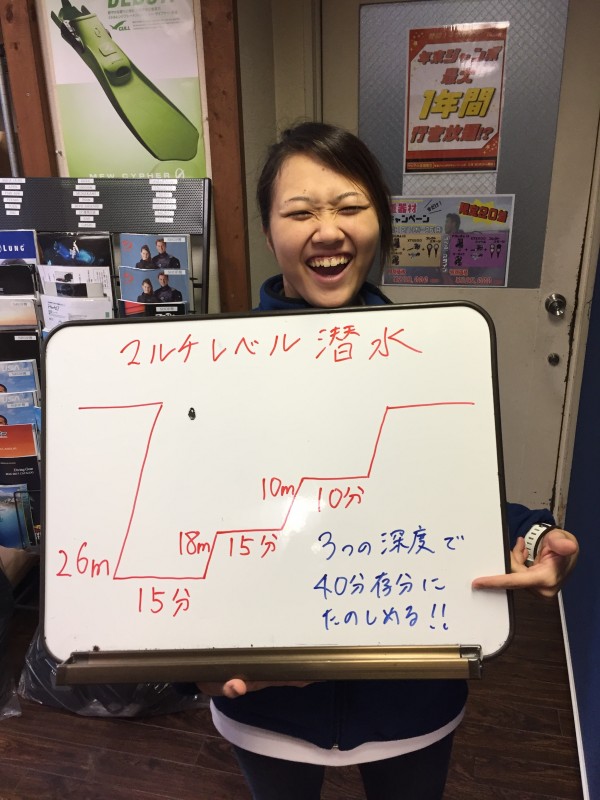 NEW CYPHER
GULL
年末ジャンボ
最大
1年間
行き放題!?
重器材
キャンペーン
限定20組
LUNG
マルチレベル 潜水
10m
10分
18m
15分
26m
15分
3つの深度で
40分存分に
たのしめる!!